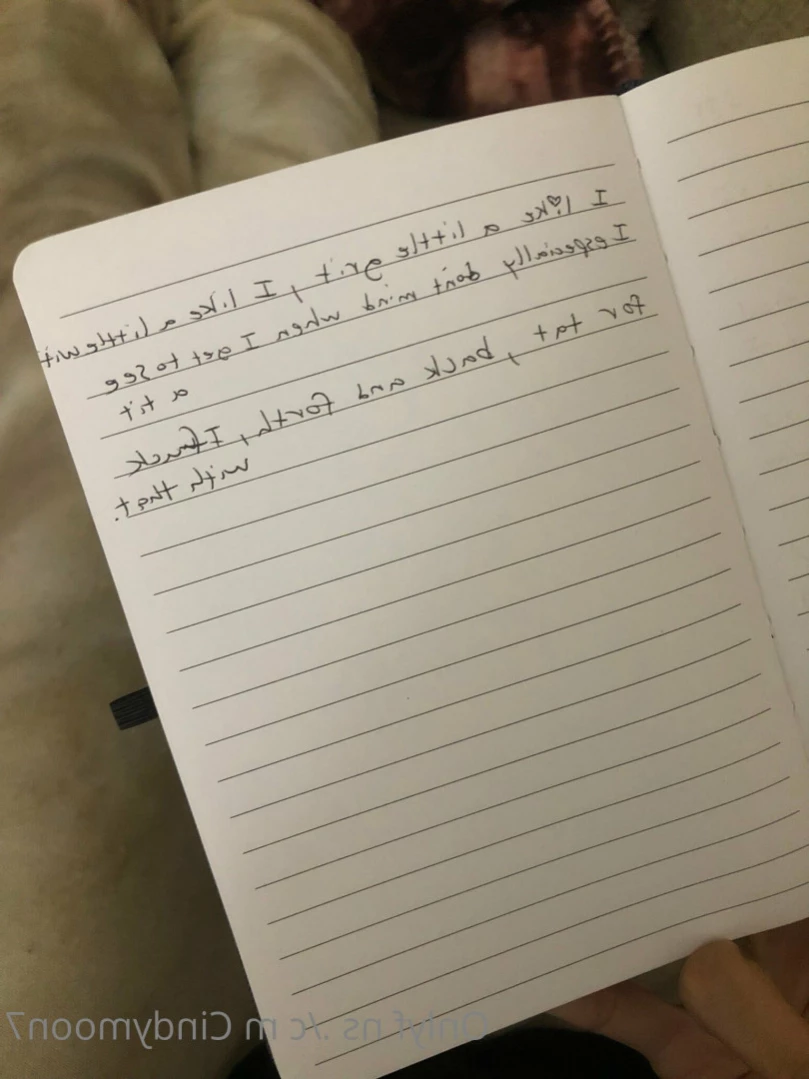 I like a little grit, I like a little wit
I especially don't mind when I get to see
a tit
for tat, back and forth, I fuck
with that.
Cindymoon7